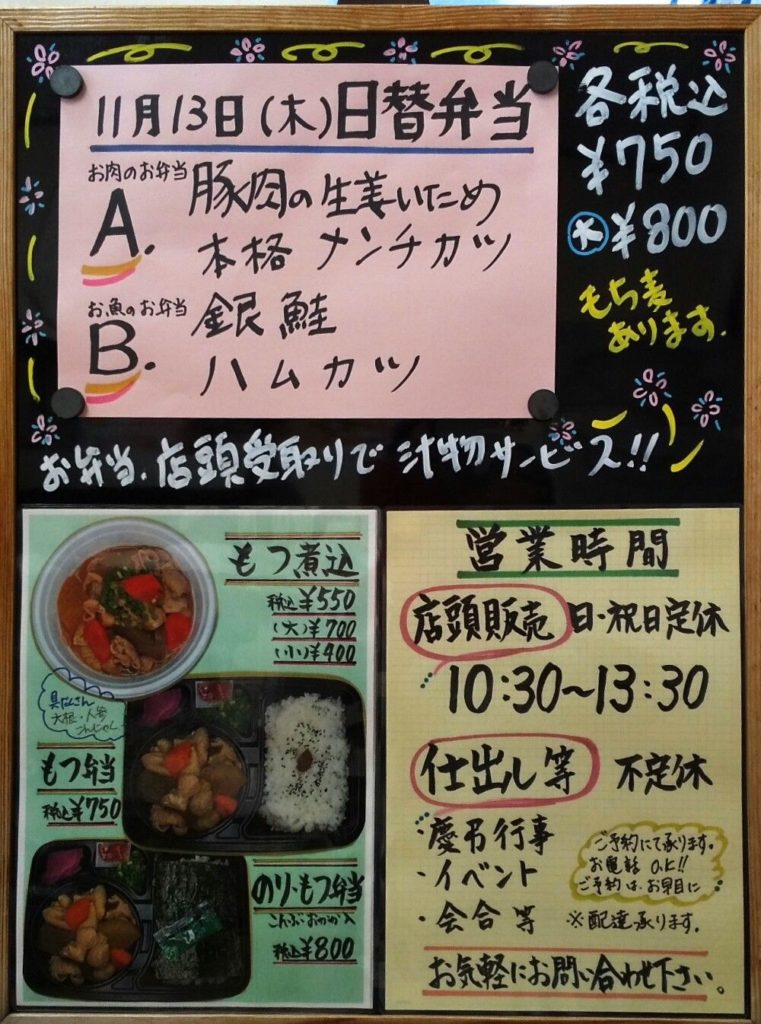 11月13日(木)日替弁当
お肉のお弁当
A. 豚肉の生姜いため
本格メンチカツ
お魚のお弁当
B. 銀鮭
ハムカツ
各税込
¥750
大 ¥800
もち麦
あります.
お弁当、店頭受取りで 汁物サービス!!
もつ煮込
税込¥550
(大)¥700
(小)¥400
具だくさん
大根・人参
こんにゃく
もつ弁当
税込¥750
のり・もつ弁当
こんぶ・おかか入
税込¥800
営業時間
店頭販売 日・祝日定休
10:30~13:30
仕出し等 不定休
・慶弔行事
・イベント
・会合等
ご予約にて承ります。
お電話OK!!
ご予約は、お早目に
※配達承ります。
お気軽にお問い合わせ下さい。